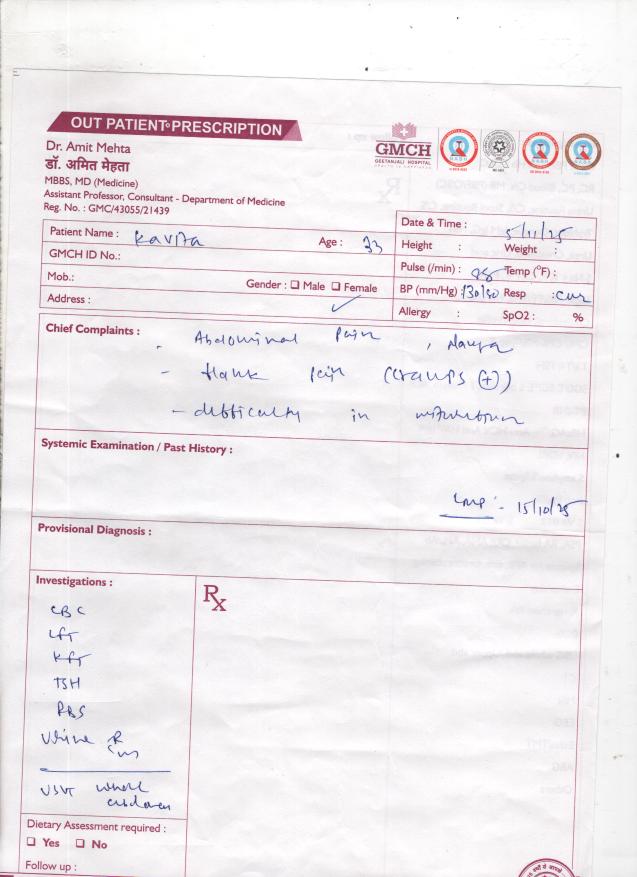 OUT PATIENT PRESCRIPTION
Dr. Amit Mehta
डॉ. अमित मेहता
MBBS, MD (Medicine)
Assistant Professor, Consultant - Department of Medicine
Reg. No. : GMC/43055/21439
GMCH
GEETANJALI HOSPITAL
Patient Name : Kavita Age : 33
GMCH ID No.:
Mob.: Gender : Male Female
Address :
Date & Time : 5/11/25
Height : Weight :
Pulse (/min) : 98 Temp (°F) :
BP (mm/Hg) : 130/80 Resp :
Allergy : SpO2 : %
Chief Complaints : Abdominal Pain,
- flank pain (cramps +)
- difficulty in
Systemic Examination / Past History :
LMP : 15/10/25
Provisional Diagnosis :
Investigations :
Rx
CBC
LFT
KFT
TSH
RBS
Urine R
whole
Dietary Assessment required :
Yes No
Follow up :